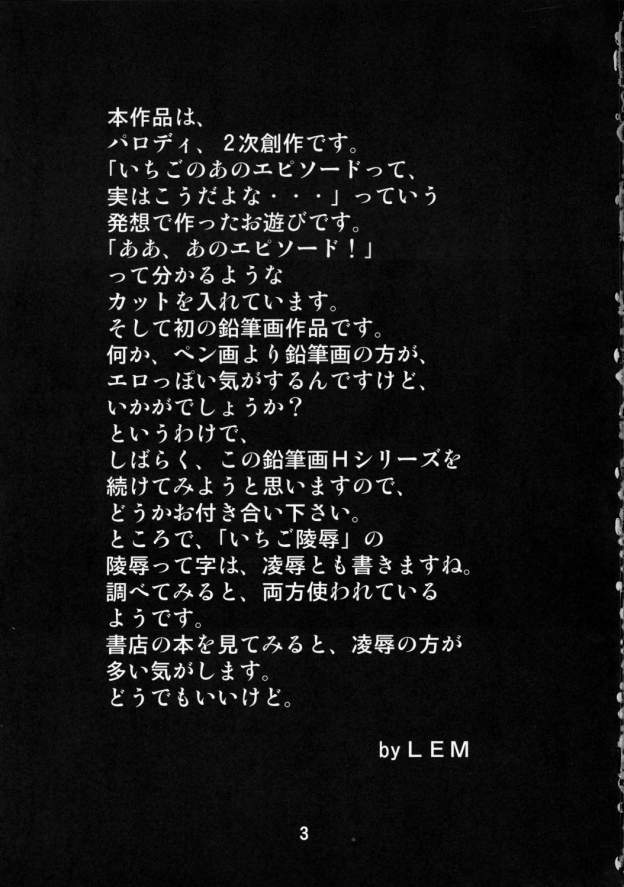 本作品は、
パロディ、２次創作です。
「いちごのあのエピソードって、
実はこうだよな・・・」っていう
発想で作ったお遊びです。
「ああ、あのエピソード！」
って分かるような
カットを入れています。
そして初の鉛筆画作品です。
何か、ペン画より鉛筆画の方が、
エロっぽい気がするんですけど、
いかがでしょうか？
というわけで、
しばらく、この鉛筆画Ｈシリーズを
続けてみようと思いますので、
どうかお付き合い下さい。
ところで、「いちご陵辱」の
陵辱って字は、凌辱とも書きますね。
調べてみると、両方使われている
ようです。
書店の本を見てみると、凌辱の方が
多い気がします。
どうでもいいけど。
by ＬＥＭ
3